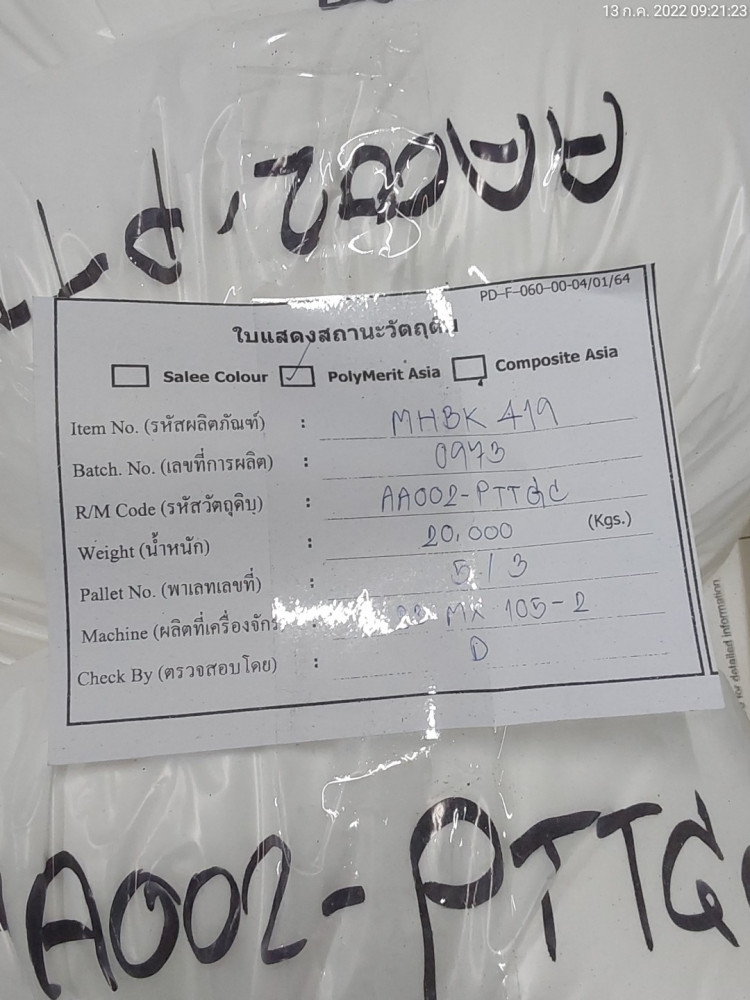 13 ก.ค. 2022 09:21:23
AA002-PTT
PD-F-060-00-04/01/64
ใบแสดงสถานะวัตถุดิบ
Salee Colour ✓ PolyMerit Asia Composite Asia
Item No. (รหัสผลิตภัณฑ์) : MHBK 419
Batch. No. (เลขที่การผลิต) : 0973
R/M Code (รหัสวัตถุคิบ) : AA002-PTTGC
Weight (น้ำหนัก) : 20,000 (Kgs.)
Pallet No. (พาเลทเลขที่) : 5/3
Machine (ผลิตที่เครื่องจักร : MX 105-2
Check By (ตรวจสอบโดย) : D
for detailed information
AA002-PTTG